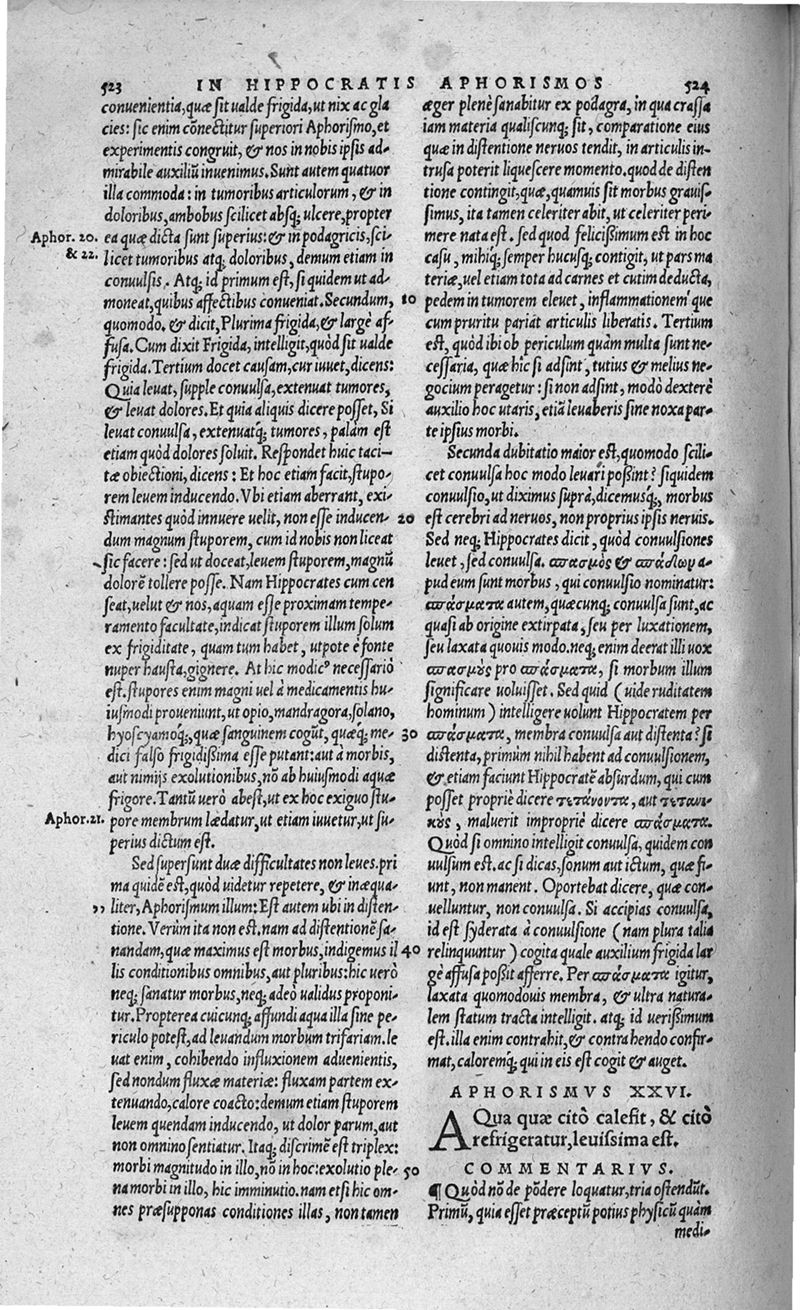 523 IN HIPPOCRATIS APHORISMOS 524
conuenientia, quæ sit ualde frigida, ut nix ac gla
cies: sic enim cõnectitur superiori Aphorismo, et
experimentis congruit, & nos in nobis ipsis ad-
mirabile auxiliũ inuenimus. Sunt autem quatuor
illa commoda: in tumoribus articulorum, & in
doloribus, ambobus scilicet absq; ulcere, propter
Aphor. 20. ea quæ dicta sunt superius: & in podagricis, sci-
& 22. licet tumoribus atq; doloribus, demum etiam in
conuulsis. Atq; id primum est, si quidem ut ad-
moneat, quibus affectibus conueniat. Secundum, 10
quomodo. & dicit, Plurima frigida, & largè af-
fusa. Cum dixit Frigida, intelligit, quòd sit ualde
frigida. Tertium docet causam, cur iuuet, dicens:
Quia leuat, supple conuulsa, extenuat tumores,
& leuat dolores. Et quia aliquis dicere posset, Si
leuat conuulsa, extenuatq; tumores, palàm est
etiam quòd dolores soluit. Respondet huic taci-
tæ obiectioni, dicens: Et hoc etiam facit, stupo-
rem leuem inducendo. Vbi etiam aberrant, exi-
stimantes quòd innuere uelit, non esse inducen- 20
dum magnum stuporem, cum id nobis non liceat
sic facere: sed ut doceat, leuem stuporem, magnũ
dolorẽ tollere posse. Nam Hippocrates cum cen
seat, uelut & nos, aquam esse proximam tempe-
ramento facultate, indicat stuporem illum solum
ex frigiditate, quam tum habet, utpote è fonte
nuper hausta, gignere. At hic modicꝰ necessariò
est. stupores enim magni uel à medicamentis hu-
iusmodi proueniunt, ut opio, mandragora, solano,
hyoscyamoq;, quæ sanguinem cogũt, quæq; me- 30
dici falsò frigidissima esse putant: aut à morbis,
aut nimijs exolutionibus, nõ ab huiusmodi aquæ
frigore. Tantũ uerò abest, ut ex hoc exiguo stu-
Aphor. 21. pore membrum lædatur, ut etiam iuuetur, ut su-
perius dictum est.
Sed supersunt duæ difficultates non leues. pri
ma quidẽ est, quòd uidetur repetere, & inæqua-
„ liter, Aphorismum illum: Est autem ubi in disten-
tione. Verùm ita non est. nam ad distentionẽ sa-
nandam, quæ maximus est morbus, indigemus il 40
lis conditionibus omnibus, aut pluribus: hic uerò
neq; sanatur morbus, neq; adeò ualidus proponi-
tur. Propterea cuicunq; affundi aqua illa sine pe-
riculo potest, ad leuandum morbum trifariam. le
uat enim, cohibendo influxionem aduenientis,
sed nondum fluxæ materiæ: fluxam partem ex-
tenuando, calore coacto: demum etiam stuporem
leuem quendam inducendo, ut dolor parum, aut
non omnino sentiatur. Itaq; discrimẽ est triplex:
morbi magnitudo in illo, nõ in hoc: exolutio ple- 50
na morbi in illo, hic imminutio. nam etsi hic om-
nes præsupponas conditiones illas, non tamen
æger plenè sanabitur ex podagra, in qua crassa
iam materia qualiscunq; sit, comparatione eius
quæ in distentione neruos tendit, in articulis in-
trusa poterit liquescere momento. quod de disten
tione contingit, quæ, quamuis sit morbus grauis-
simus, ita tamen celeriter abit, ut celeriter peri-
mere nata est. sed quod felicissimum est in hoc
casu, mihiq; semper hucusq; contigit, ut pars ma
teriæ, uel etiam tota ad carnes et cutim deducta,
pedem in tumorem eleuet, inflammationem que
cum pruritu pariat articulis liberatis. Tertium
est, quòd ibi ob periculum quàm multa sunt ne-
cessaria, quæ hîc si adsint, tutius & melius ne-
gocium peragetur: si non adsint, modò dexterè
auxilio hoc utaris, etiã leuaberis sine noxa par-
te ipsius morbi.
Secunda dubitatio maior est, quomodo scili-
cet conuulsa hoc modo leuari possint? siquidem
conuulsio, ut diximus suprà, dicemusq;, morbus
est cerebri ad neruos, non proprius ipsis neruis.
Sed neq; Hippocrates dicit, quòd conuulsiones
leuet, sed conuulsa. σπασμὸς & σπάσμα a-
pud eum sunt morbus, qui conuulsio nominatur:
σπάσματα autem, quæcunq; conuulsa sunt, ac
quasi ab origine extirpata, seu per luxationem,
seu laxata quouis modo. neq; enim deerat illi uox
σπασμὸς pro σπάσματα, si morbum illum
significare uoluisset. Sed quid (uide ruditatem
hominum) intelligere uolunt Hippocratem per
σπάσματα, membra conuulsa aut distenta? si
distenta, primùm nihil habent ad conuulsionem,
& etiam faciunt Hippocratẽ absurdum, qui cum
posset propriè dicere τετάνοντα, aut τετανι-
κὸς, maluerit impropriè dicere σπάσματα.
Quòd si omnino intelligit conuulsa, quidem con
uulsum est. ac si dicas, sonum aut ictum, quæ fi-
unt, non manent. Oportebat dicere, quæ con-
uelluntur, non conuulsa. Si accipias conuulsa,
id est syderata à conuulsione (nam plura talia
relinquuntur) cogita quale auxilium frigida lar
gè affusa possit afferre. Per σπάσματα igitur,
laxata quomodouis membra, & ultra natura-
lem statum tracta intelligit. atq; id uerissimum
est. illa enim contrahit, & contrahendo confir-
mat, caloremq; qui in eis est cogit & auget.
APHORISMVS XXVI.
AQua quæ citò calefit, & citò
refrigeratur, leuissima est.
COMMENTARIVS.
¶ Quòd nõ de põdere loquatur, tria ostendũt.
Primũ, quia esset præceptũ potius physicũ quàm
medi-